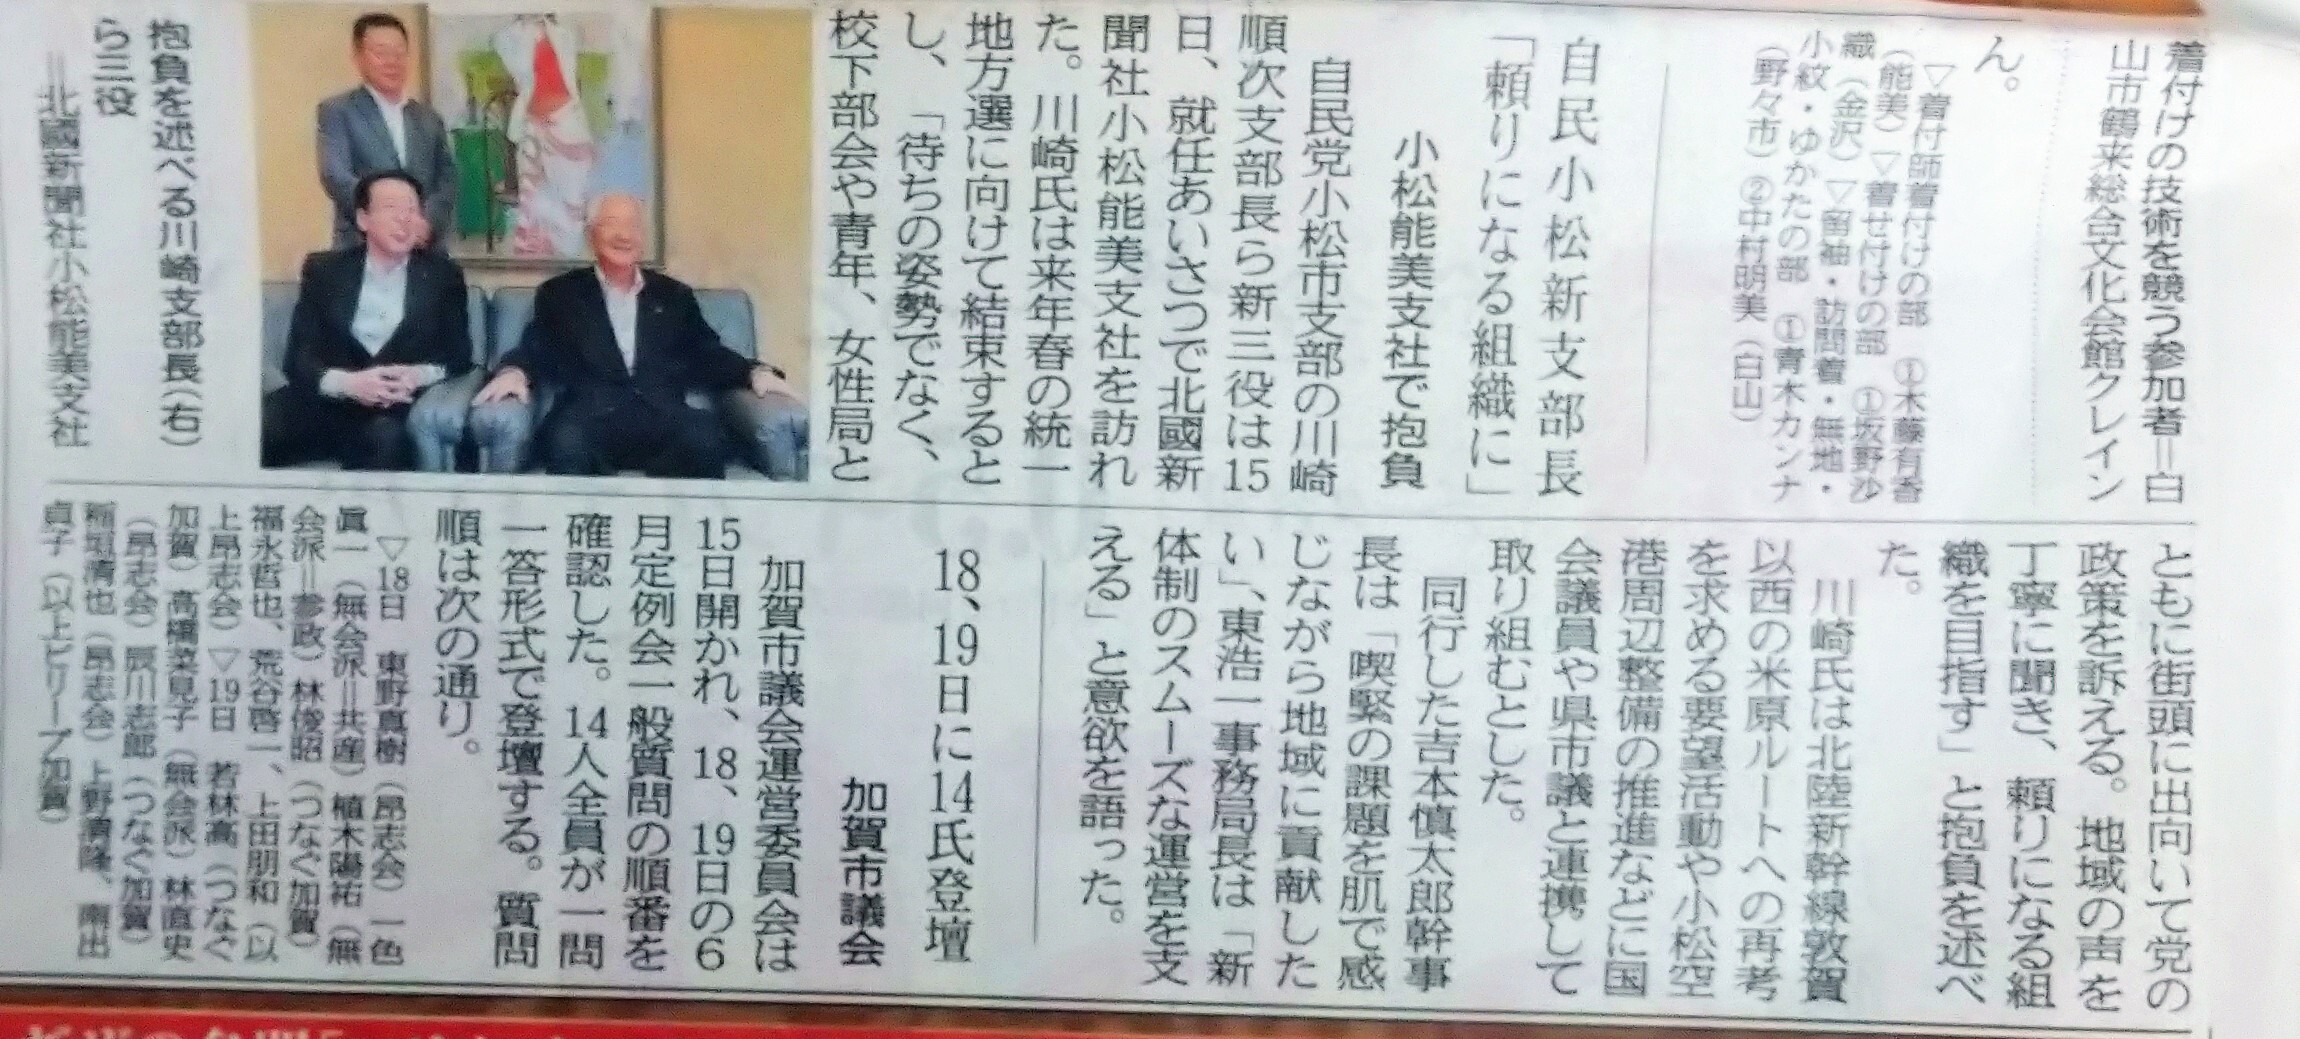 着付けの技術を競う参加者＝白
山市鶴来総合文化会館クレイン
ん。
▽着付師着付けの部　①木藤有香
（能美）▽着せ付けの部　①坂野沙
織（金沢）▽留袖・訪問着・無地・
小紋・ゆかたの部　①青木カンナ
（野々市）②中村明美（白山）
自民小松新支部長
「頼りになる組織に」
小松能美支社で抱負
自民党小松市支部の川崎
順次支部長ら新三役は15
日、就任あいさつで北國新
聞社小松能美支社を訪れ
た。川崎氏は来年春の統一
地方選に向けて結束すると
し、「待ちの姿勢でなく、
校下部会や青年、女性局と
抱負を述べる川崎支部長（右）
ら三役
＝北國新聞社小松能美支社
ともに街頭に出向いて党の
政策を訴える。地域の声を
丁寧に聞き、頼りになる組
織を目指す」と抱負を述べ
た。
川崎氏は北陸新幹線敦賀
以西の米原ルートへの再考
を求める要望活動や小松空
港周辺整備の推進などに国
会議員や県市議と連携して
取り組むとした。
同行した吉本慎太郎幹事
長は「喫緊の課題を肌で感
じながら地域に貢献した
い」、東浩一事務局長は「新
体制のスムーズな運営を支
える」と意欲を語った。
18、19日に14氏登壇
加賀市議会
加賀市議会運営委員会は
15日開かれ、18、19日の6
月定例会一般質問の順番を
確認した。14人全員が一問
一答形式で登壇する。質問
順は次の通り。
▽18日　東野真樹（昂志会）一色
眞一（無会派＝共産）植木陽祐（無
会派＝参政）林俊昭（つなぐ加賀）
福永哲也、荒谷啓一、上田朋和（以
上昂志会）▽19日　若林高（つなぐ
加賀）高橋菜見子（無会派）林直史
（昂志会）辰川志郎（つなぐ加賀）
稲垣清也（昂志会）上野清隆、南出
貞子（以上ビリーブ加賀）